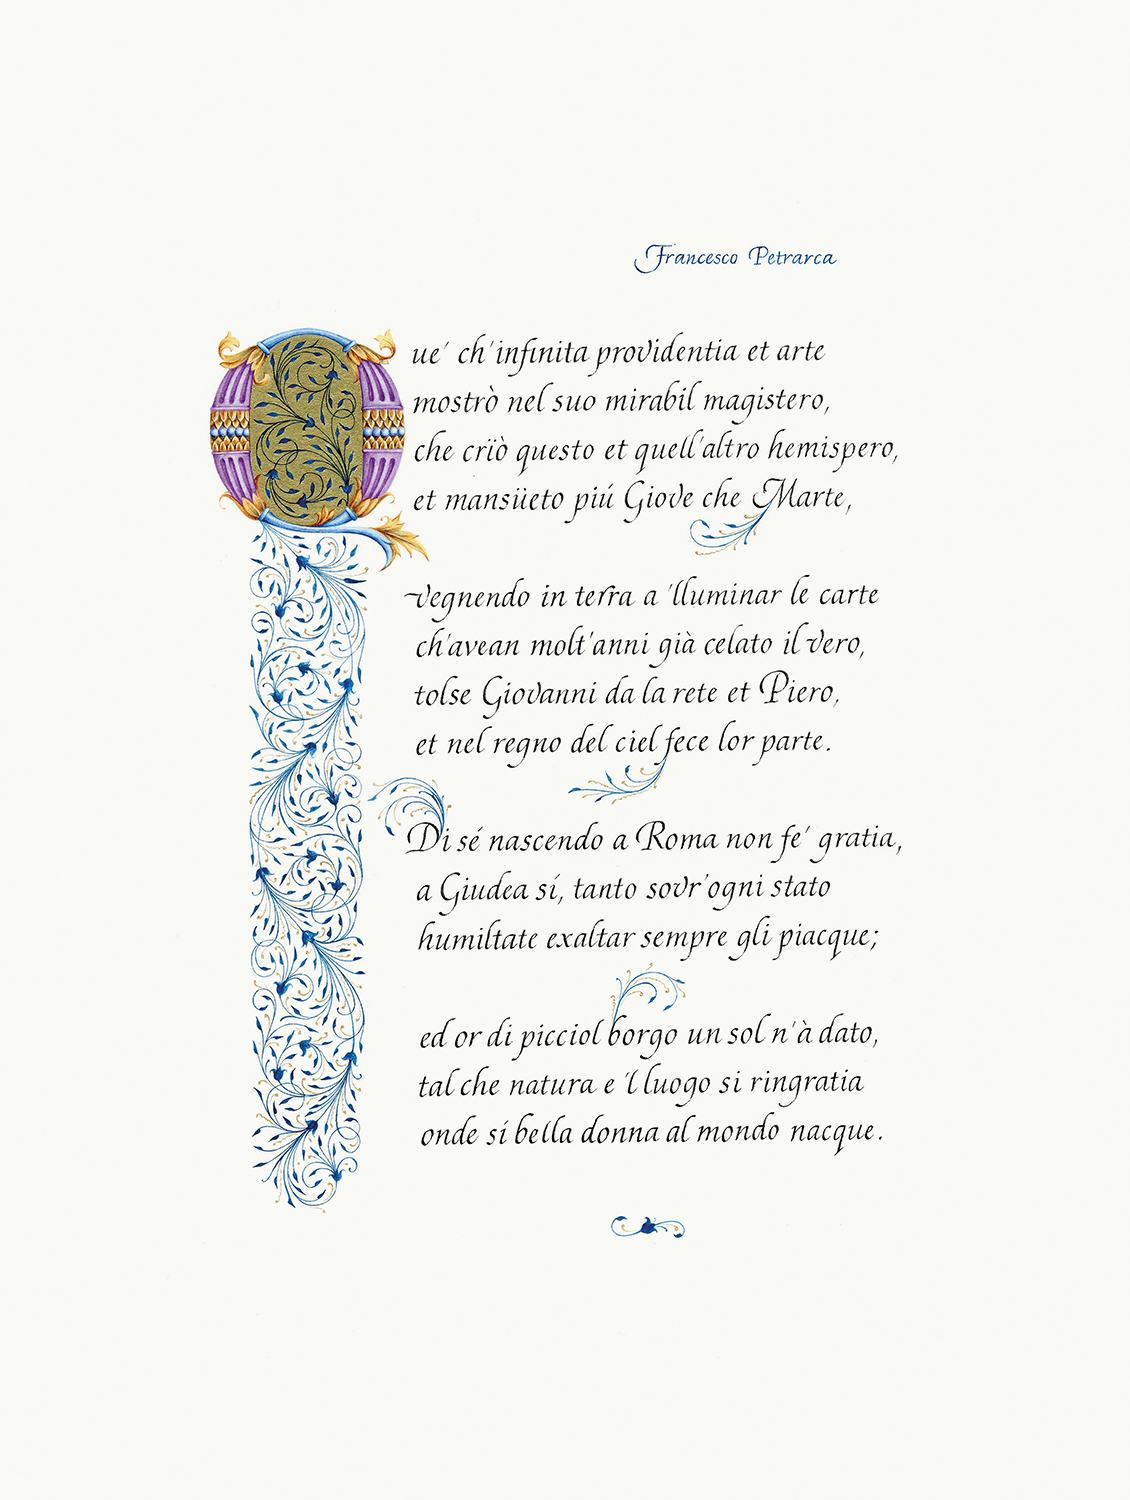 Francesco Petrarca
Que' ch'infinita providentia et arte
mostrò nel suo mirabil magistero,
che crïò questo et quell'altro hemispero,
et mansüeto piú Giove che Marte,
vegnendo in terra a 'lluminar le carte
ch'avean molt'anni già celato il vero,
tolse Giovanni da la rete et Piero,
et nel regno del ciel fece lor parte.
Di sé nascendo a Roma non fe' gratia,
a Giudea sí, tanto sovr'ogni stato
humiltate exaltar sempre gli piacque;
ed or di picciol borgo un sol n'à dato,
tal che natura e 'l luogo si ringratia
onde sí bella donna al mondo nacque.